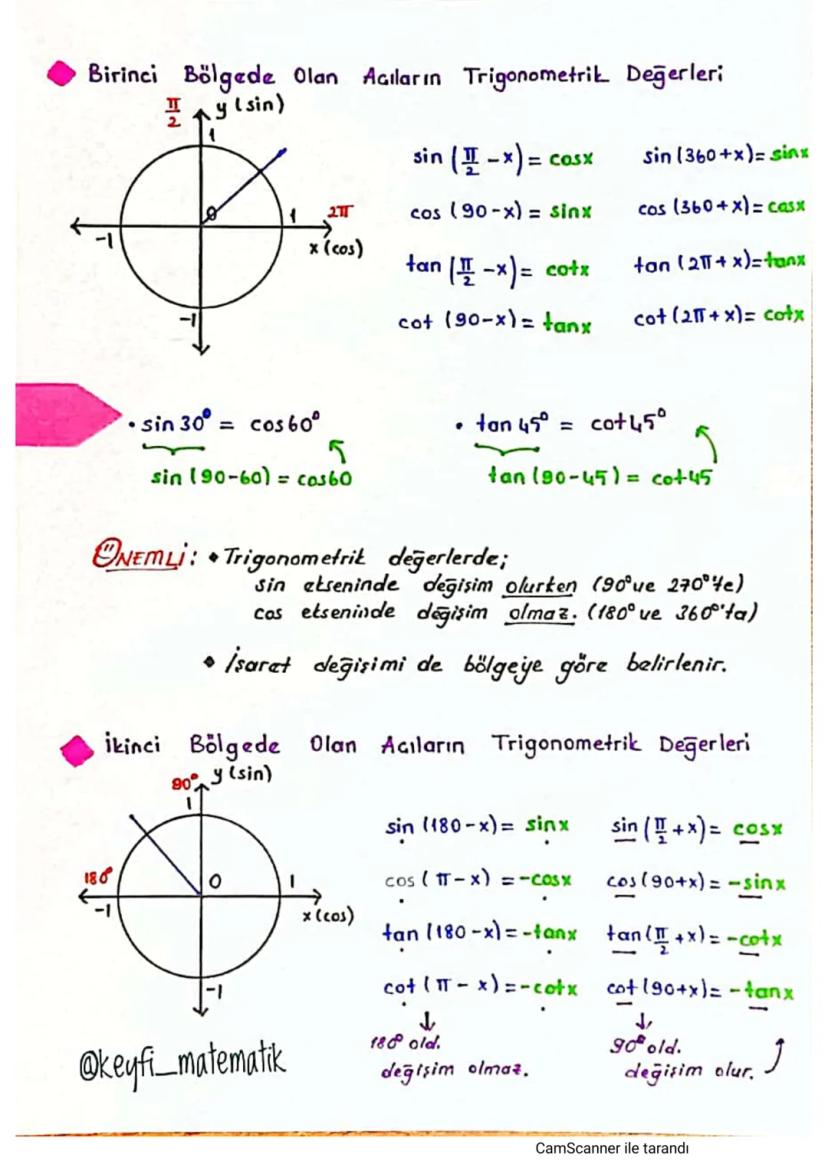 Birinci Bölgede Olan Açıların Trigonometrik Değerleri
π/2 y (sin)
1
0 1 2π
-1 x (cos)
-1
sin (π/2 - x) = cosx sin (360+x) = sinx
cos (90-x) = sinx cos (360+x) = cosx
tan (π/2 - x) = cotx tan (2π+x) = tanx
cot (90-x) = tanx cot (2π+x) = cotx
• sin 30° = cos60° • tan 45° = cot45°
sin (90-60) = cos60 tan (90-45) = cot45
ÖNEMLİ: • Trigonometrik değerlerde;
sin ekseninde değişim olurken (90° ve 270°'de)
cos ekseninde değişim olmaz. (180° ve 360°'ta)
• İşaret değişimi de bölgeye göre belirlenir.
İkinci Bölgede Olan Açıların Trigonometrik Değerleri
90° y (sin)
1
180° 0 1
-1 x (cos)
-1
sin (180-x) = sinx sin (π/2 + x) = cosx
cos (π-x) = -cosx cos (90+x) = -sinx
tan (180-x) = -tanx tan (π/2 + x) = -cotx
cot (π-x) = -cotx cot (90+x) = -tanx
↓ ↓
180° old. 90° old.
değişim olmaz. değişim olur.
@keyfi_matematik
CamScanner ile tarandı